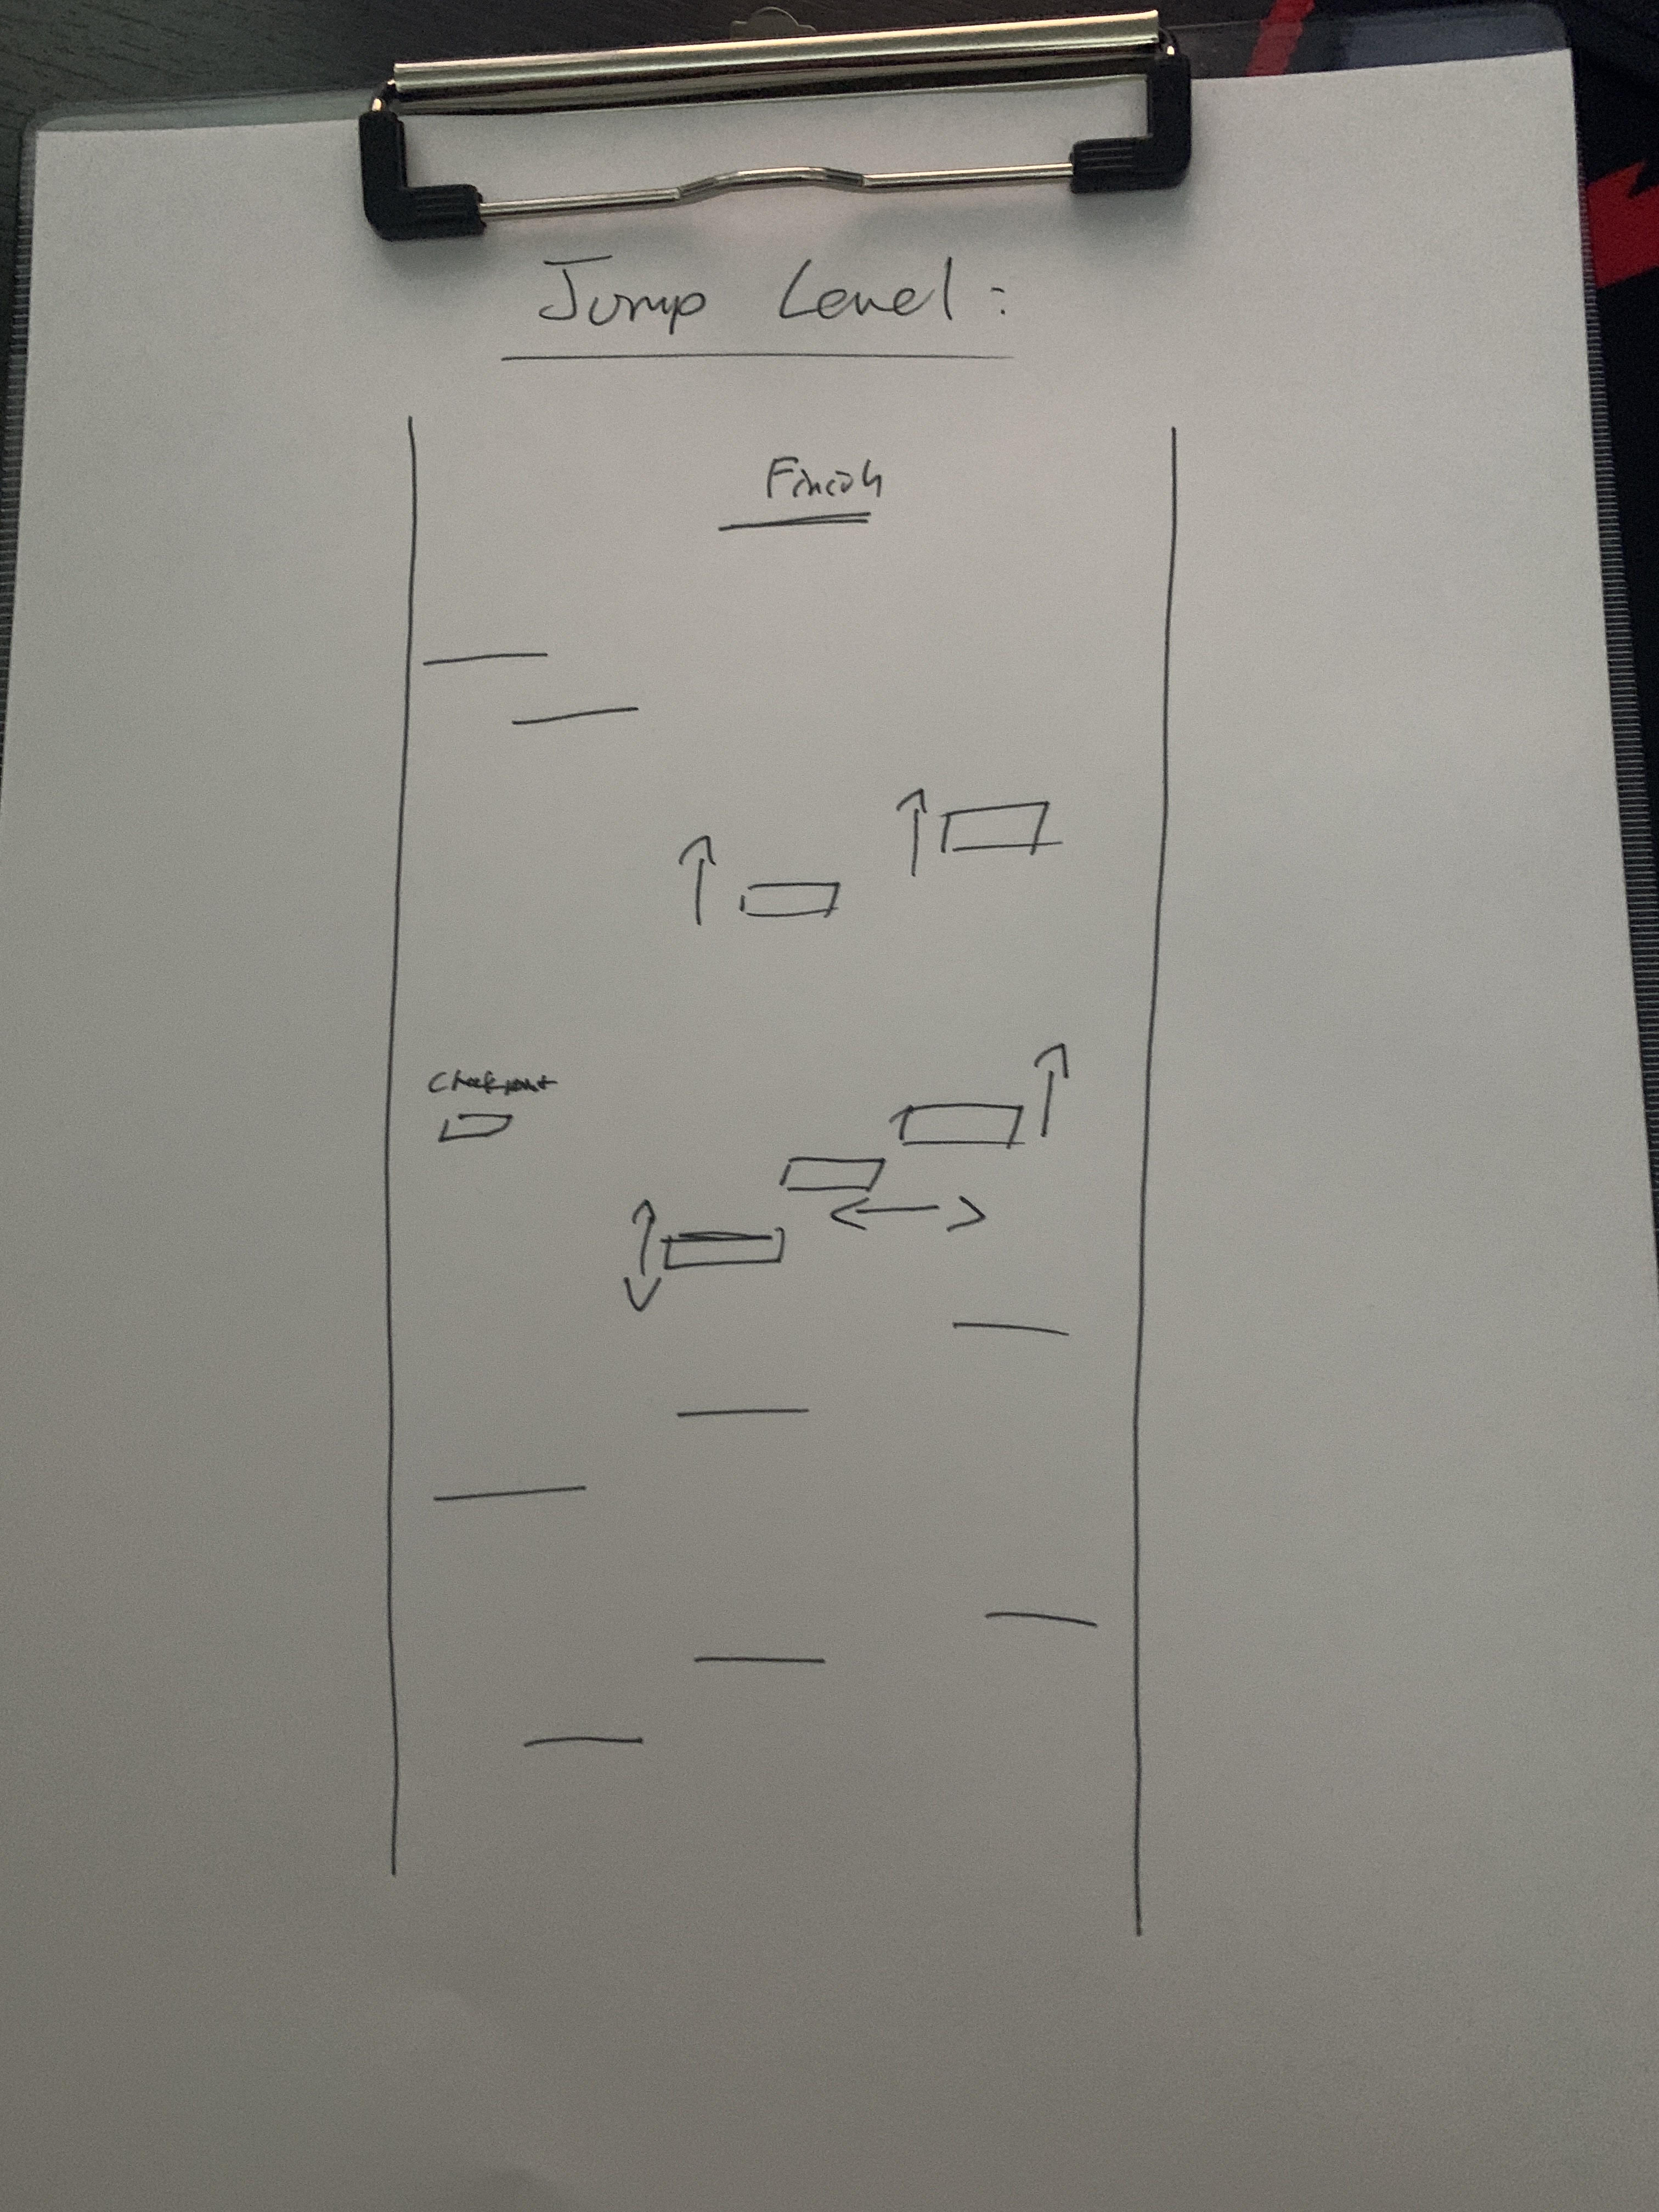 Jump Level:
Finish
Checkpoint